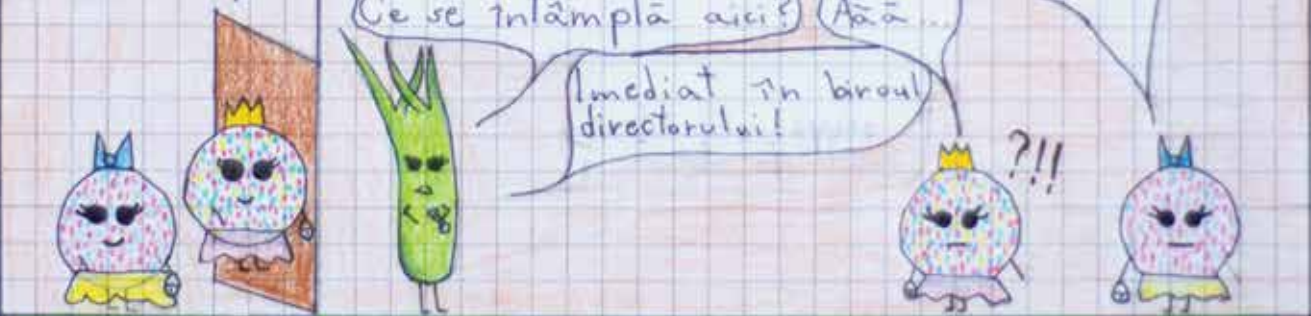 Ce se întâmplă aici?
Aăă...
Imediat în biroul
directorului!
?!!